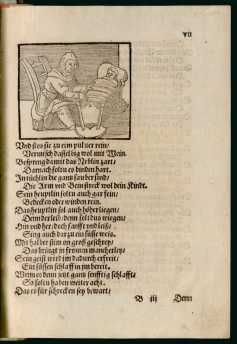 vij
Vnd stos sie zu eim puluer rein/
Vermisch dasselbig wol mit Wein.
Besprenng damit das Neblin zart/
Darnach solten es binden hart.
Jn tüchlin die gantz sauber sind/
Die Arm vnd Bein streck wol dein Kindt.
Sein heuptlin solten auch gar fein/
Bedecken oder winden rein.
Das heuptlin sol auch höher liegen/
Denn der leib/ wenn sol du wiegen/
Hin vnd her/ doch sanfft vnd leiß/
Sing auch darzu ein süsse weis.
Mit halber stim on gros geschrey/
Das bringt in fromen mancherley.
Sein geist wird im dadurch erfreit/
Ein süssen schlaff in im bereit.
Wenn es denn jetzt gantz senfftig schlafft/
So solen haben weiter acht.
Das es für schrecken sey bewart/
B iij Denn